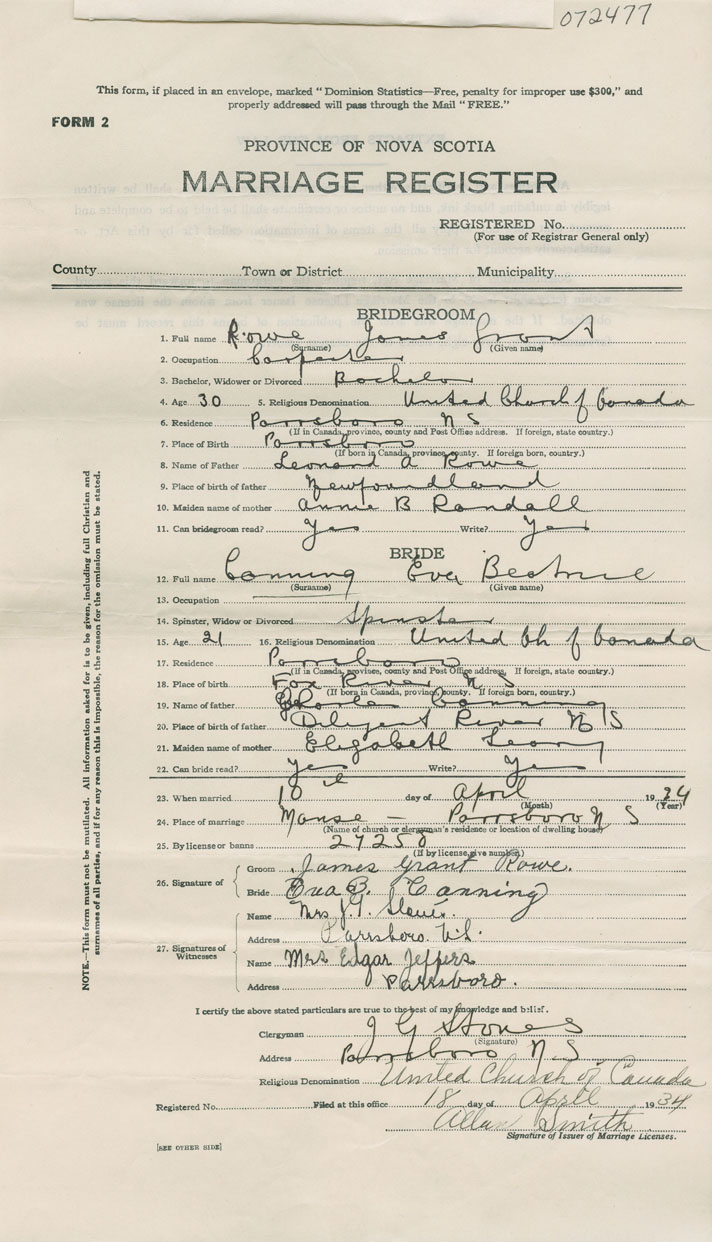 072477
This form, if placed in an envelope, marked "Dominion Statistics—Free, penalty for improper use $300," and
properly addressed will pass through the Mail "FREE."
FORM 2
PROVINCE OF NOVA SCOTIA
MARRIAGE REGISTER
REGISTERED No.
(For use of Registrar General only)
County Town or District Municipality
BRIDEGROOM
1. Full name Rowe James Grant
(Surname) (Given name)
2. Occupation Carpenter
3. Bachelor, Widower or Divorced Bachelor
4. Age 30 5. Religious Denomination United Church of Canada
6. Residence Parrsboro N S
(If in Canada, province, county and Post Office address. If foreign, state country.)
7. Place of Birth Parrsboro
(If born in Canada, province, county. If foreign born, country.)
8. Name of Father Leonard A Rowe
9. Place of birth of father Newfoundland
10. Maiden name of mother Annie B Randall
11. Can bridegroom read? Yes Write? Yes
BRIDE
12. Full name Canning Eva Beatrice
(Surname) (Given name)
13. Occupation
14. Spinster, Widow or Divorced Spinster
15. Age 21 16. Religious Denomination United Ch of Canada
17. Residence Parrsboro
(If in Canada, province, county and Post Office address, If foreign, state country.)
18. Place of birth Fox River N S
(If born in Canada, province, county. If foreign born, country.)
19. Name of father Charles Canning
20. Place of birth of father Diligent River N S
21. Maiden name of mother Elizabeth
22. Can bride read? Yes Write? Yes
23. When married 18 day of April 1934
(Month) (Year)
24. Place of marriage Manse — Parrsboro N S
(Name of church or clergyman's residence or location of dwelling house)
25. By license or banns 27258
(If by license, give number)
26. Signature of Groom James Grant Rowe.
Bride Eva B. Canning
27. Signatures of Witnesses
Name Mrs J. G.
Address Parrsboro. N.S.
Name Mrs Edgar Jeffers
Address Parrsboro.
I certify the above stated particulars are true to the best of my knowledge and belief.
Clergyman J G Stones
(Signature)
Address Parrsboro N S
Religious Denomination United Church of Canada
Registered No. Filed at this office 18 day of April 1934
Allan Smith
Signature of Issuer of Marriage Licenses.
[SEE OTHER SIDE]
NOTE.—This form must not be mutilated. All information asked for is to be given, including full Christian and
surnames of all parties, and if for any reason this is impossible, the reason for the omission must be stated.